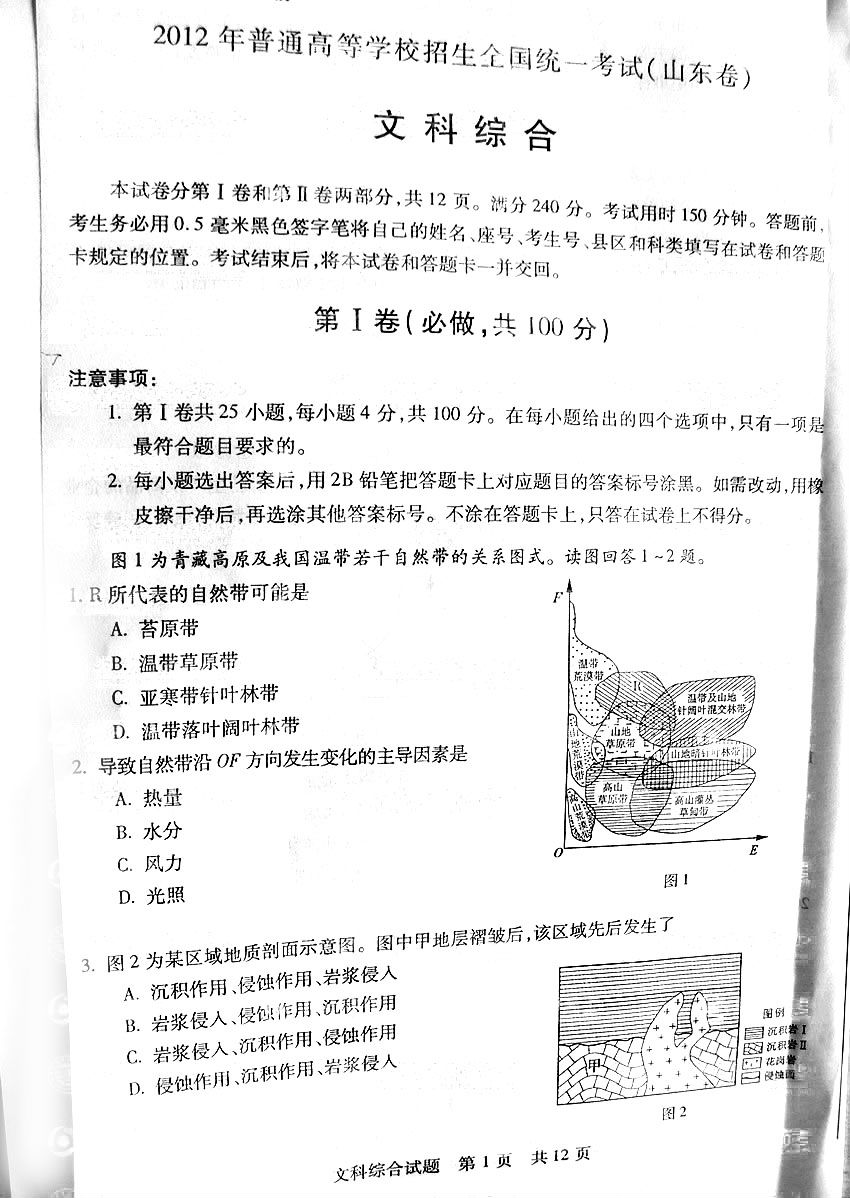 2012 年普通高等学校招生全国统一考试(山东卷)
文科综合
本试卷分第Ⅰ卷和第Ⅱ卷两部分,共 12 页。满分 240 分。考试用时 150 分钟。答题前,
考生务必用 0.5 毫米黑色签字笔将自己的姓名、座号、考生号、县区和科类填写在试卷和答题
卡规定的位置。考试结束后,将本试卷和答题卡一并交回。
第Ⅰ卷(必做,共 100 分)
注意事项:
1. 第Ⅰ卷共 25 小题,每小题 4 分,共 100 分。在每小题给出的四个选项中,只有一项是
最符合题目要求的。
2. 每小题选出答案后,用 2B 铅笔把答题卡上对应题目的答案标号涂黑。如需改动,用橡
皮擦干净后,再选涂其他答案标号。不涂在答题卡上,只答在试卷上不得分。
图 1 为青藏高原及我国温带若干自然带的关系图式。读图回答 1~2 题。
1. R 所代表的自然带可能是
A. 苔原带
B. 温带草原带
C. 亚寒带针叶林带
D. 温带落叶阔叶林带
2. 导致自然带沿 OF 方向发生变化的主导因素是
A. 热量
B. 水分
C. 风力
D. 光照
F
温带
荒漠带
R
温带及山地
针阔叶混交林带
山地
草原带
山地荒漠带
山地暗针叶林带
高山
草原带
高山灌丛
草甸带
高山荒漠带
O
E
图 1
3. 图 2 为某区域地质剖面示意图。图中甲地层褶皱后,该区域先后发生了
A. 沉积作用、侵蚀作用、岩浆侵入
B. 岩浆侵入、侵蚀作用、沉积作用
C. 岩浆侵入、沉积作用、侵蚀作用
D. 侵蚀作用、沉积作用、岩浆侵入
甲
图例
沉积岩Ⅰ
沉积岩Ⅱ
花岗岩
侵蚀面
图 2
文科综合试题 第 1 页 共 12 页